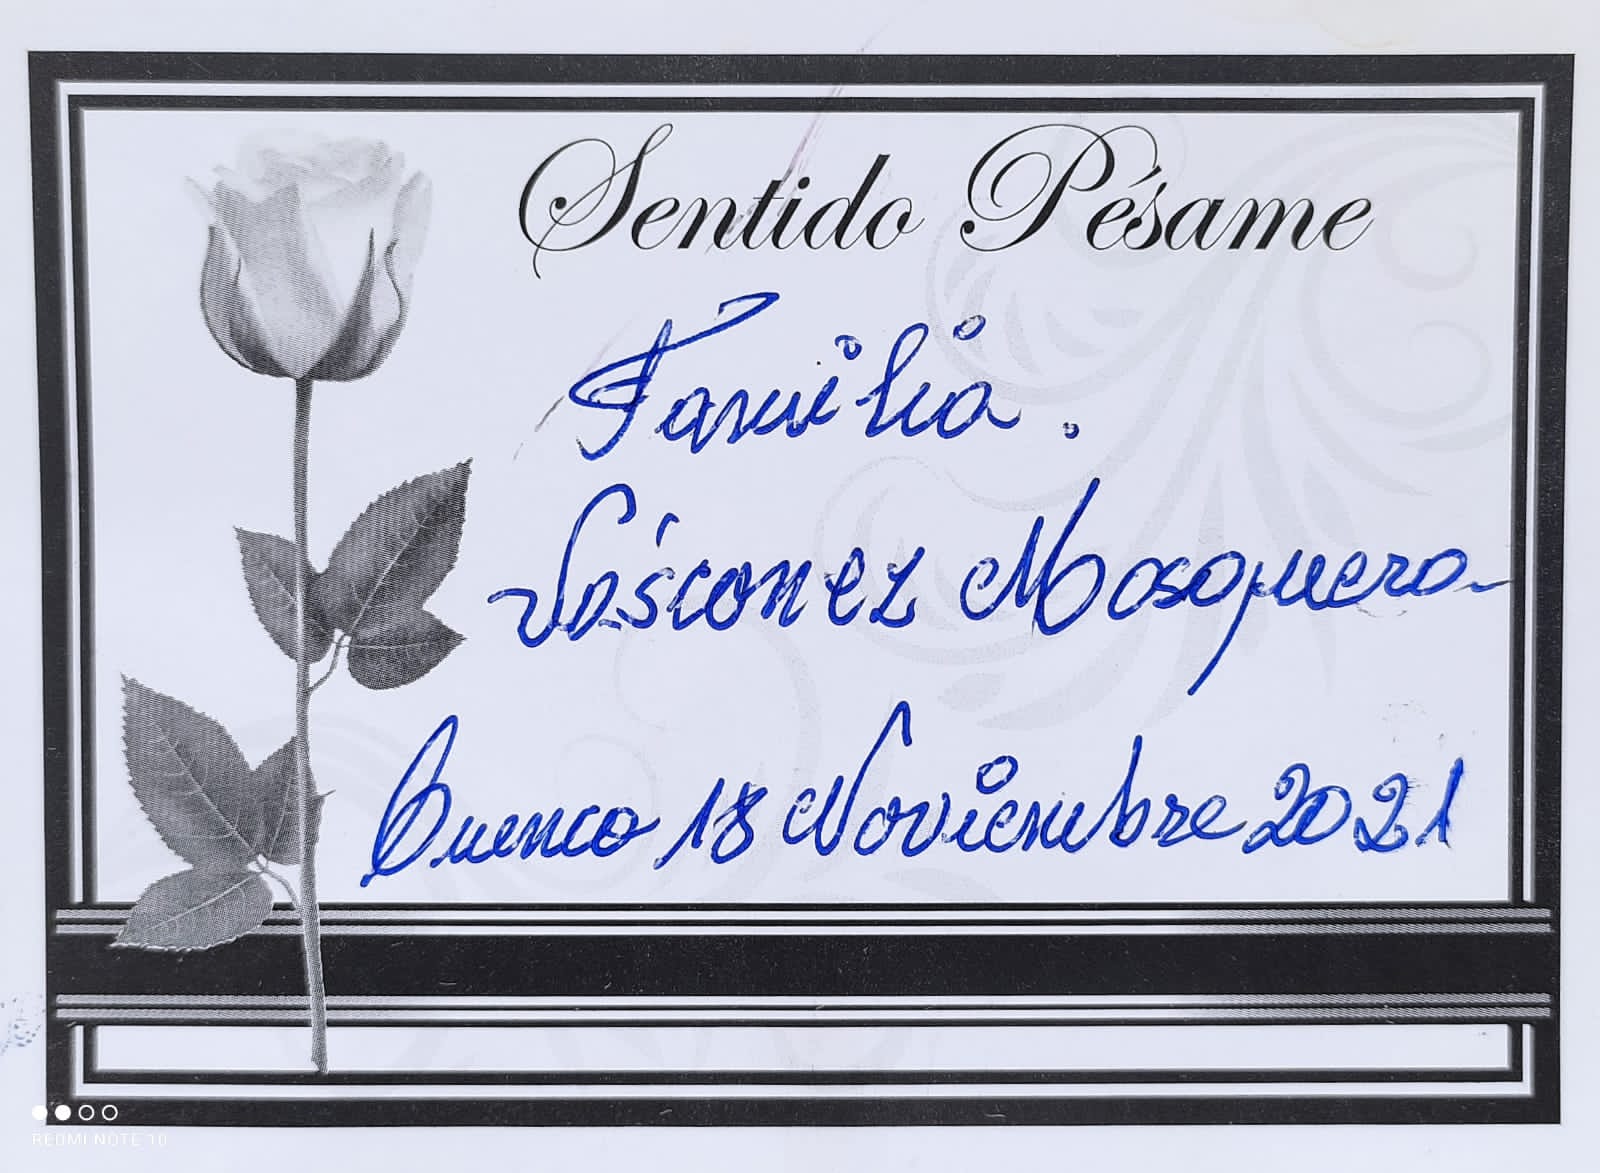 Sentido Pésame
Familia.
Vásconez Mosquera
Cuenca 18 Noviembre 2021
REDMI NOTE 10